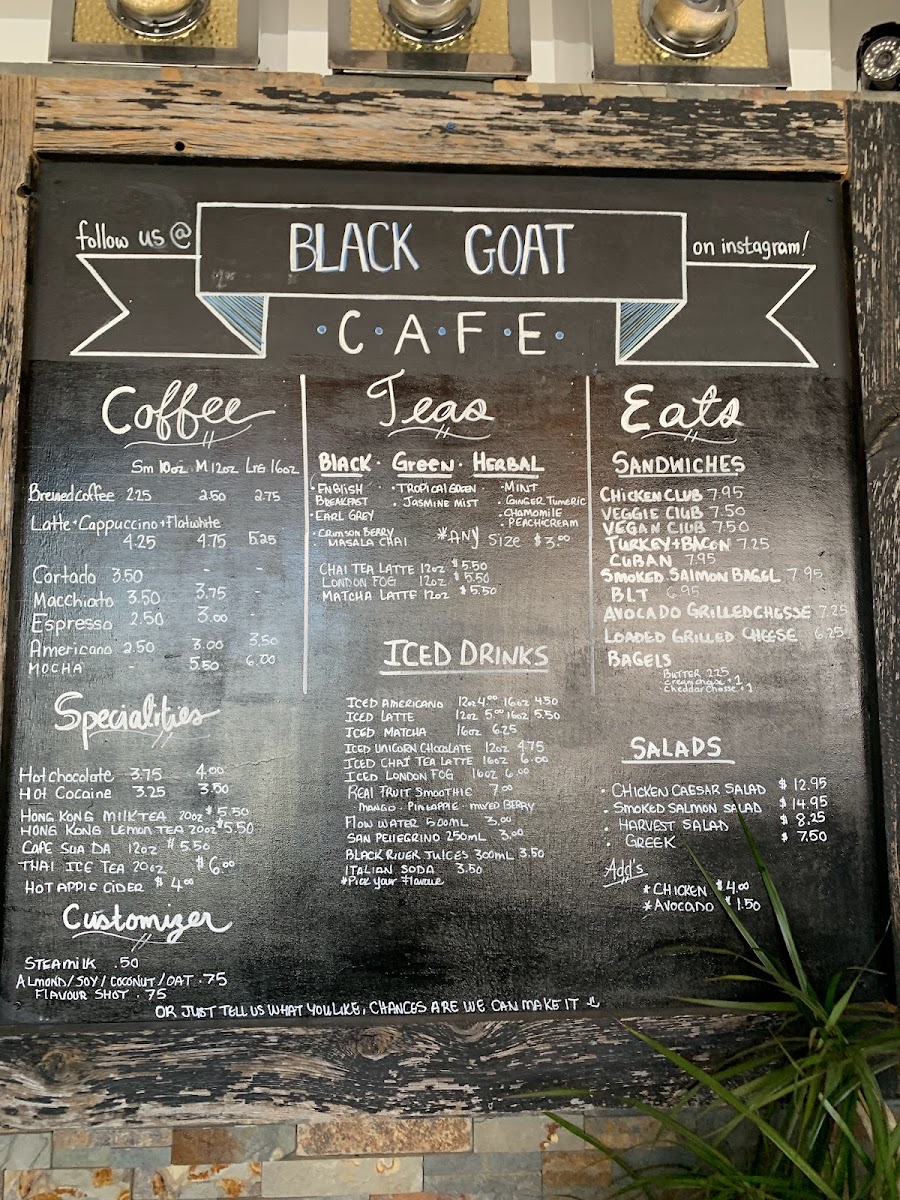 follow us @ BLACK GOAT on instagram!
• C • A • F • E •
Coffee
Sm 10oz M 12oz LRG 16oz
Brewed Coffee 2.25 2.50 2.75
Latte + Cappuccino + Flatwhite
4.25 4.75 5.25
Cortado 3.50 - -
Macchiato 3.50 3.75 -
Espresso 2.50 3.00 -
Americano 2.50 3.00 3.50
MOCHA - 5.50 6.00
Specialities
Hot chocolate 3.75 4.00
Hot Cocaine 3.25 3.50
HONG KONG MILK TEA 20oz $5.50
HONG KONG Lemon TEA 20oz $5.50
CAFE SUA DA 12oz $5.50
THAI ICE TEA 20oz $6.00
HOT APPLE CIDER $4.00
Customizer
STEAMILK .50
ALMOND/SOY/COCONUT/OAT .75
FLAVOUR SHOT .75
Teas
BLACK · GREEN · HERBAL
· ENGLISH
BREAKFAST
· EARL GREY
· CRIMSON BERRY
· MASALA CHAI
· TROPICAL GREEN
· JASMINE MIST
· MINT
· GINGER TUMERIC
· CHAMOMILE
· PEACH CREAM
*ANY SIZE $3.00
CHAI TEA LATTE 12oz $5.50
LONDON FOG 12oz $5.50
MATCHA LATTE 12oz $5.50
ICED DRINKS
ICED AMERICANO 12oz 4.00 16oz 4.50
ICED LATTE 12oz 5.00 16oz 5.50
ICED MATCHA 16oz 6.25
ICED UNICORN CHOCOLATE 12oz 4.75
ICED CHAI TEA LATTE 16oz 6.00
ICED LONDON FOG 16oz 6.00
REAL FRUIT SMOOTHIE 7.00
MANGO · PINEAPPLE · MIXED BERRY
FLOW WATER 500ML 3.00
SAN PELLEGRINO 250ML 3.00
BLACK RIVER JUICES 300ML 3.50
ITALIAN SODA 3.50
*Pick your Flavour
Eats
SANDWICHES
CHICKEN CLUB 7.95
VEGGIE CLUB 7.50
VEGAN CLUB 7.50
TURKEY + BACON 7.25
CUBAN 7.95
SMOKED SALMON BAGEL 7.95
BLT 6.95
AVOCADO GRILLED CHEESE 7.25
LOADED GRILLED CHEESE 6.25
BAGELS
BUTTER 2.25
· cream cheese +1
· cheddar cheese +1
SALADS
· CHICKEN CAESAR SALAD $12.95
· SMOKED SALMON SALAD $14.95
· HARVEST SALAD $8.25
· GREEK $7.50
Add's
* CHICKEN $4.00
* AVOCADO $1.50
OR JUST TELL US WHAT YOU LIKE, CHANCES ARE WE CAN MAKE IT